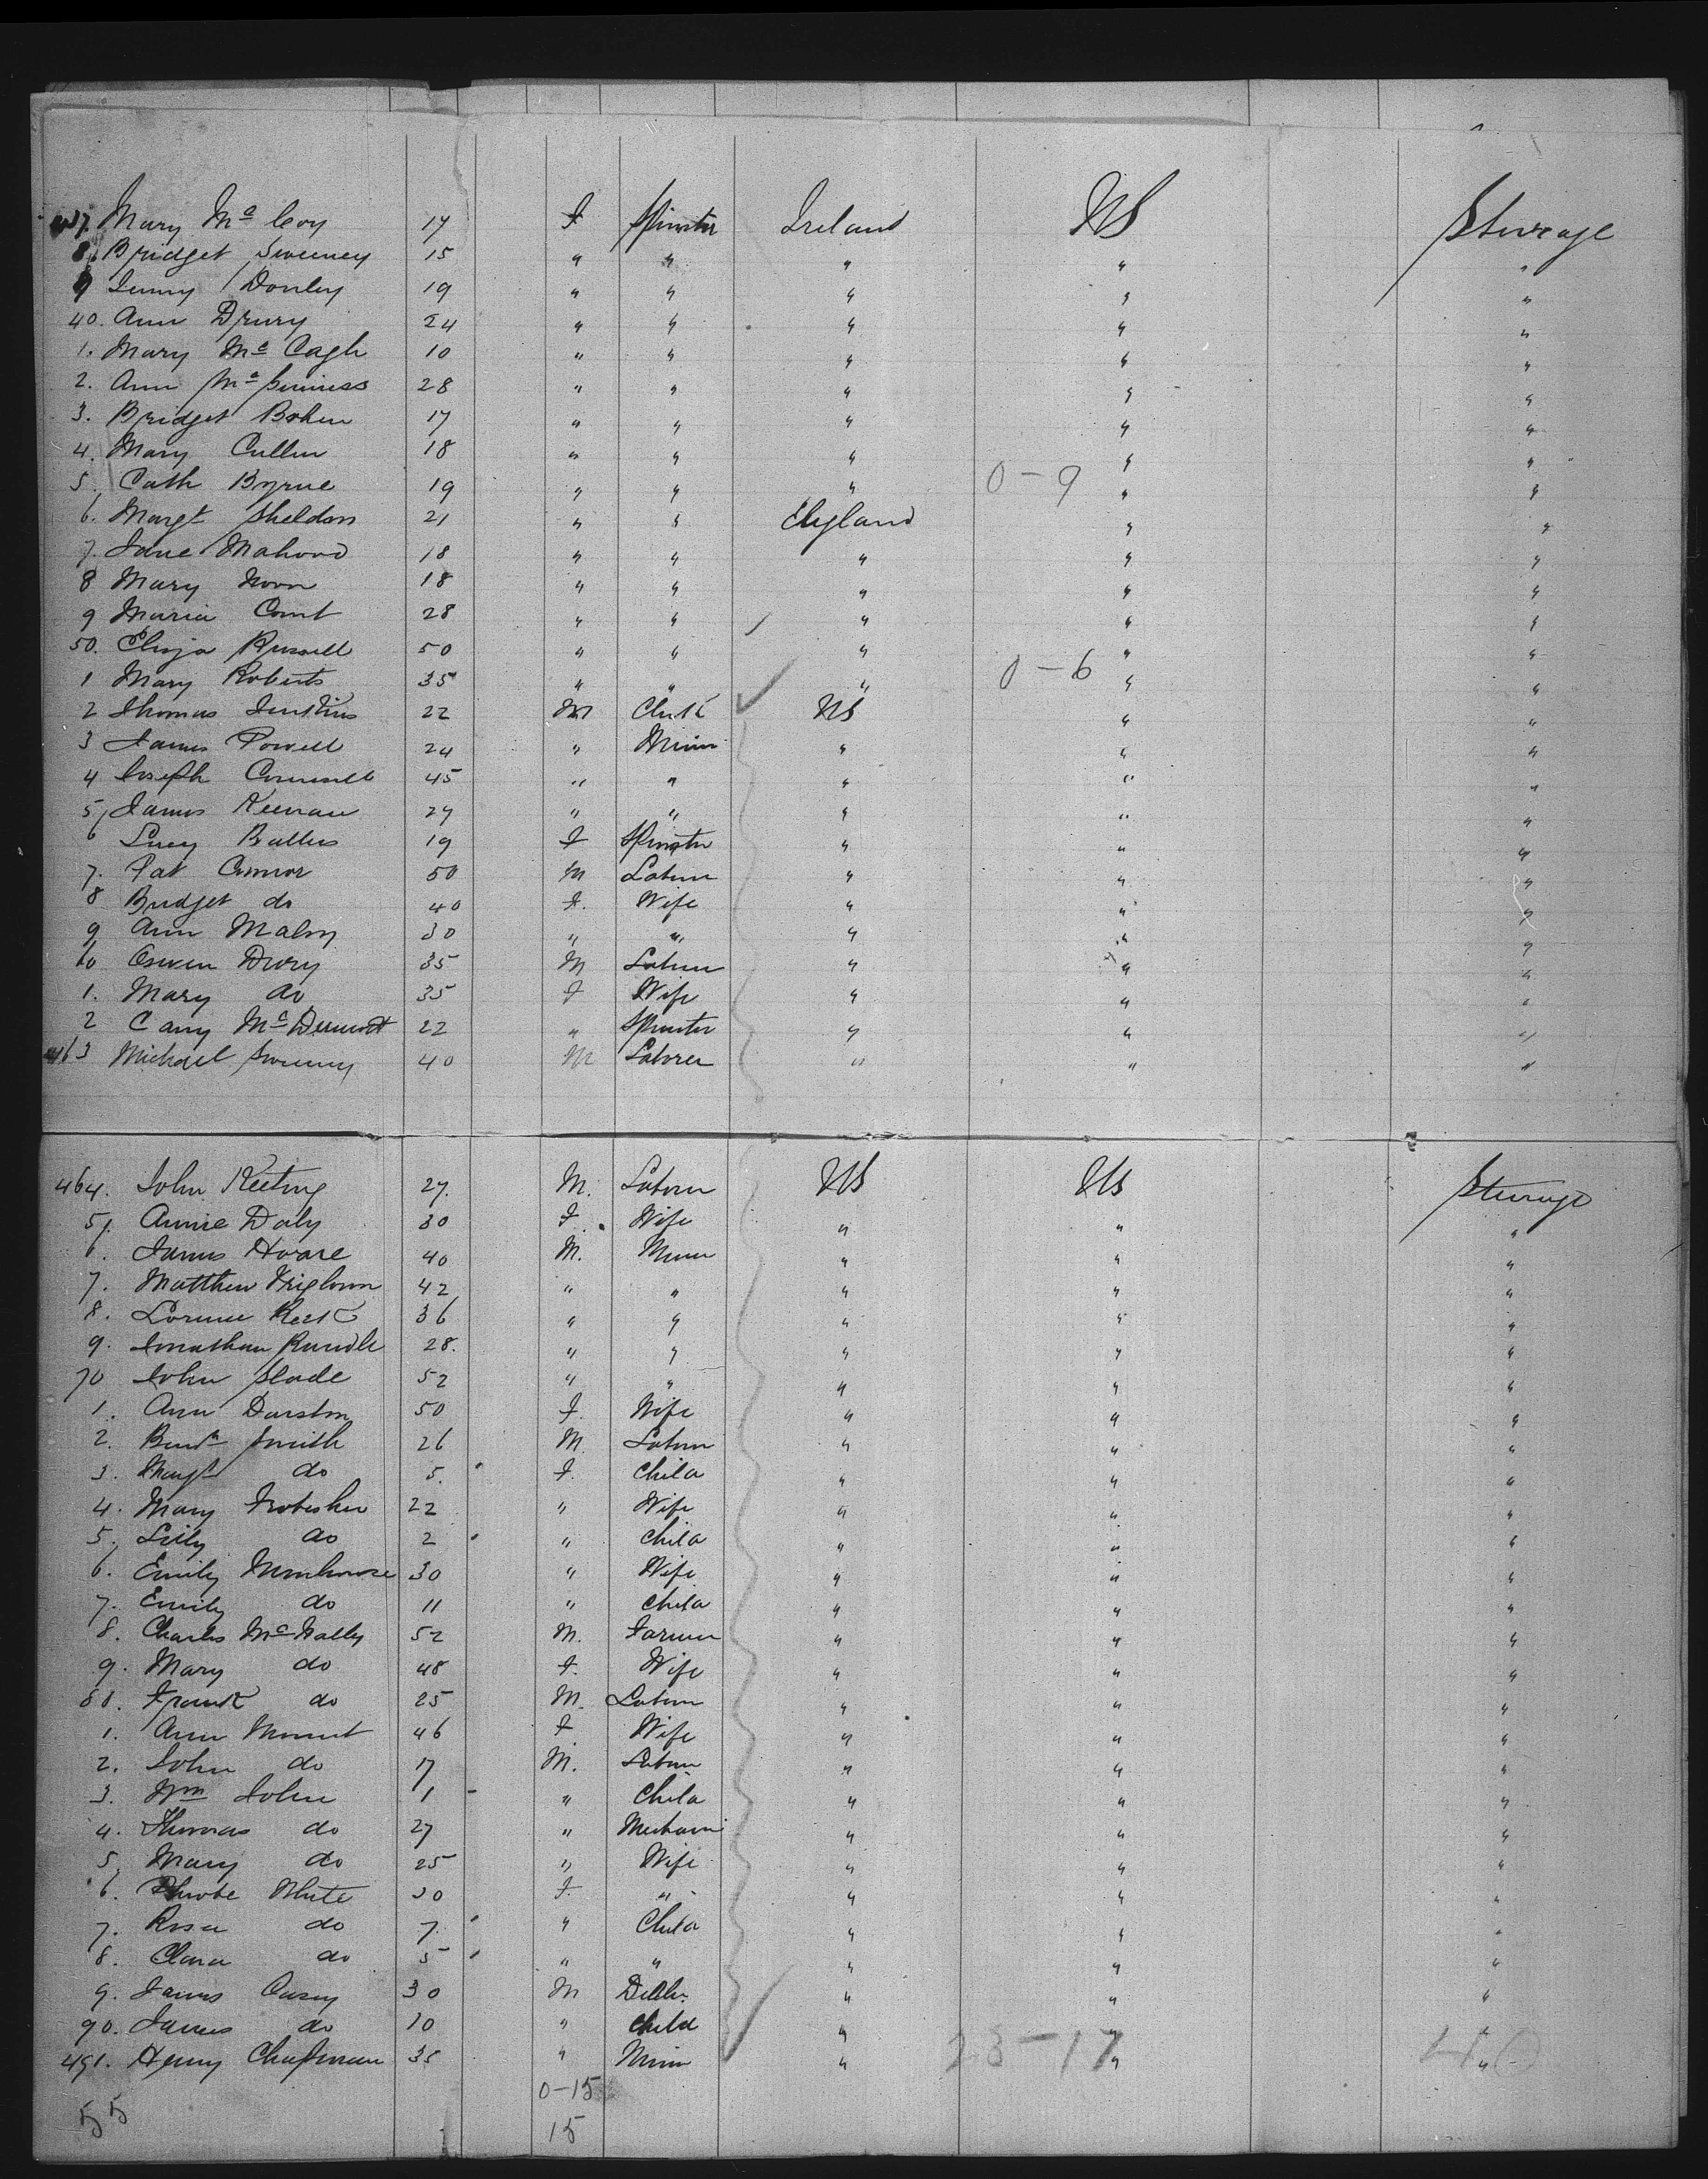 437. Mary Mc Coy 17 F Spinster Ireland US Steerage
8 Bridget Sweeney 15 " " " " "
9 Jenny Donley 19 " " " " "
40. Ann Drury 24 " " " " "
1. Mary Mc Cagh 10 " " " " "
2. Ann Mc 28 " " " " "
3. Bridget Bohen 17 " " " " "
4. Mary Cullen 18 " " " " "
5. Cath Byrne 19 " " " 0-9 " "
6. Margt Sheldon 21 " " England " "
7. Jane Mahood 18 " " " " "
8 Mary Noon 18 " " " " "
9 Maria Count 28 " " " " "
50. Eliza Russell 50 " " " " "
1 Mary Roberts 35 " " " 0-6 " "
2 Thomas Jenkins 22 M Clerk US " "
3 James Powell 24 " Miner " " "
4 Joseph 45 " " " " "
5. James Keenan 27 " " " " "
6 Lucy Butler 19 F Spinster " " "
7. Pat Connor 50 M Laborer " " "
8 Bridget do 40 F. Wife " " "
9 Ann Maloy 30 " " " " "
60 Owen Drury 35 M Laborer " " "
1. Mary do 35 F Wife " " "
2 Cany Mc Dermott 22 " Spinster " " "
463 Michael Sweeny 40 M Laborer " " "
464. John Keeting 27. M. Laborer US US Steerage
5. Annie Daly 30 F. Wife " " "
6. James Hoare 40 M. Miner " " "
7. Matthew Triglown 42 " " " " "
8. 36 " " " " "
9. Jonathan Rundle 28. " " " " "
70 John Slade 52 " " " " "
1. Ann Durston 50 F. Wife " " "
2. Benjn Smith 26 M. Laborer " " "
3. Margt do 5. F. Child " " "
4. Mary Frobisher 22 " Wife " " "
5. Lily do 2 " Child " " "
6. Emily 30 " Wife " " "
7. Emily do 11 " Child " " "
8. Charles Mc Nally 52 M. Farmer " " "
9. Mary do 48 F. Wife " " "
80. Frank do 25 M. Laborer " " "
1. Ann Mount 46 F Wife " " "
2. John do 17 M. Laborer " " "
3. Wm John 1 " Child " " "
4. Thomas do 27 " Mechanic " " "
5. Mary do 25 " Wife " " "
6. Phoebe White 30 F. " " " "
7. Rosa do 7. " Child " " "
8. Clara do 5 " " " " "
9. James Casey 30 M Dealer " " "
90. James do 10 " Child " " "
491. Henry Chapman 35 " Miner " 23-17 " "
0-15
55 15